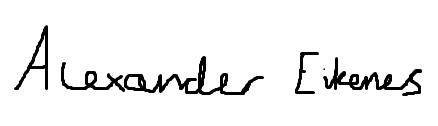 Alexander Eikenes